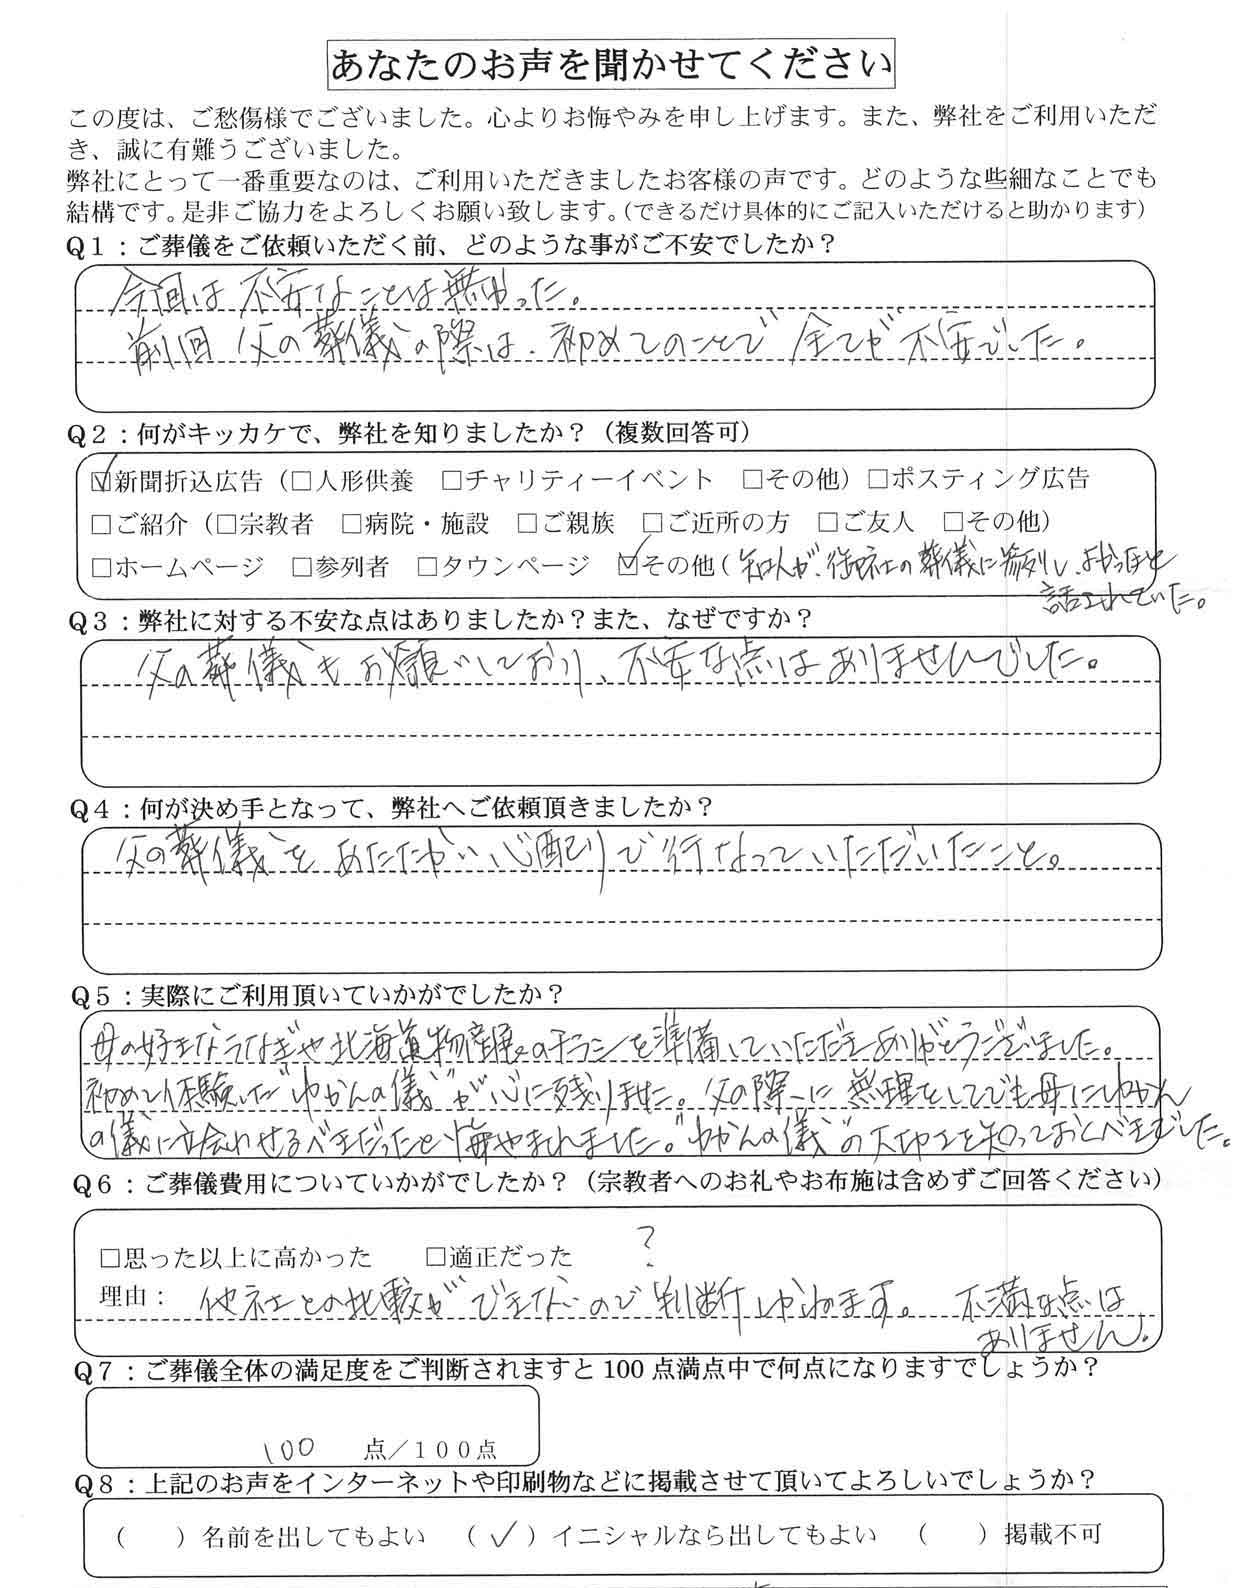 あなたのお声を聞かせてください
この度は、ご愁傷様でございました。心よりお悔やみを申し上げます。また、弊社をご利用いただ
き、誠に有難うございました。
弊社にとって一番重要なのは、ご利用いただきましたお客様の声です。どのような些細なことでも
結構です。是非ご協力をよろしくお願い致します。（できるだけ具体的にご記入いただけると助かります）
Q1：ご葬儀をご依頼いただく前、どのような事がご不安でしたか？
今回は不安なことは無かった。
前回 父の葬儀の際は、初めてのことで全てが不安でした。
Q2：何がキッカケで、弊社を知りましたか？（複数回答可）
☑新聞折込広告（□人形供養 □チャリティーイベント □その他）□ポスティング広告
□ご紹介（□宗教者 □病院・施設 □ご親族 □ご近所の方 □ご友人 □その他）
□ホームページ □参列者 □タウンページ ☑その他（知人が、御社の葬儀に参列し、よかったと
話されていた。
Q3：弊社に対する不安な点はありましたか？また、なぜですか？
父の葬儀もお願いしており、不安な点はありませんでした。
Q4：何が決め手となって、弊社へご依頼頂きましたか？
父の葬儀をあたたかい心配りで行なっていただいたこと。
Q5：実際にご利用頂いていかがでしたか？
母の好きなうなぎや北海道物産展のチラシを準備していただきありがとうございました。
初めて体験した"ゆかんの儀"が心に残りました。父の際に無理をしてでも母にゆかん
の儀に立会わせるべきだったと悔やまれました。"ゆかんの儀"の大切さを知っておくべきでした。
Q6：ご葬儀費用についていかがでしたか？（宗教者へのお礼やお布施は含めずご回答ください）
□思った以上に高かった □適正だった ？
理由：他社との比較ができないので判断しかねます。 不満な点は
ありません。
Q7：ご葬儀全体の満足度をご判断されますと100点満点中で何点になりますでしょうか？
100 点／100点
Q8：上記のお声をインターネットや印刷物などに掲載させて頂いてよろしいでしょうか？
（ ）名前を出してもよい （✓）イニシャルなら出してもよい （ ）掲載不可